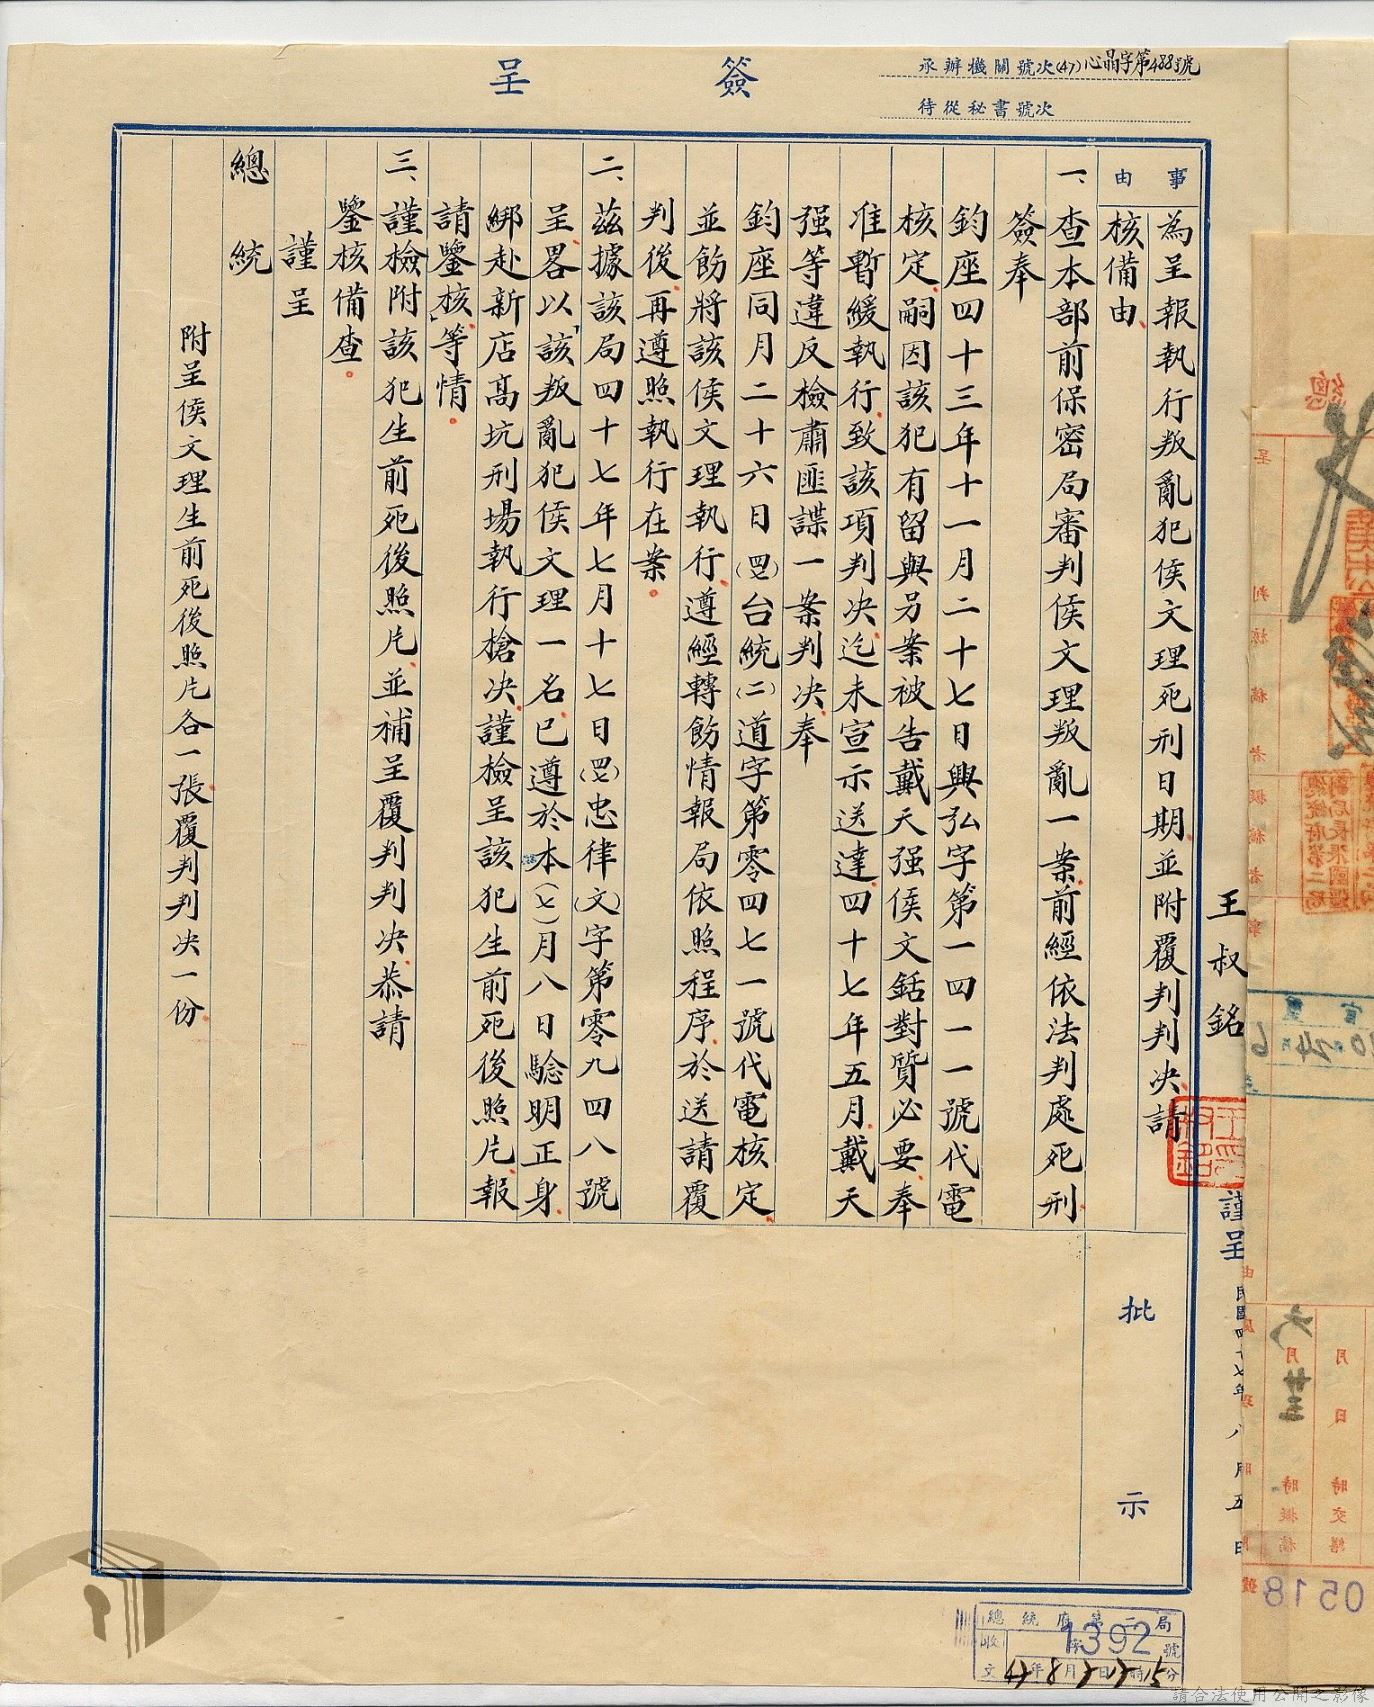 簽呈
承辦機關號次(47)心晶字第488號
待從秘書號次
事由
為呈報執行叛亂犯侯文理死刑日期並附覆判判决請
核備由
一、查本部前保密局審判侯文理叛亂一案前經依法判處死刑
簽奉
鈞座四十三年十一月二十七日興弘字第一四一一號代電
核定嗣因該犯有留與另案被告戴天强侯文銛對質必要奉
准暫緩執行致該項判决迄未宣示送達四十七年五月戴天
强等違反檢肅匪諜一案判决奉
鈞座同月二十六日(四七)台統(二)道字第零四七一號代電核定
並飭將該侯文理執行遵經轉飭情報局依照程序於送請覆
判後再遵照執行在案。
二、茲據該局四十七年七月十七日(四七)忠律(文)字第零九四八號
呈畧以「該叛亂犯侯文理一名已遵於本(七)月八日驗明正身
綁赴新店髙坑刑場執行槍决謹檢呈該犯生前死後照片報
請鑒核」等情。
三、謹檢附該犯生前死後照片並補呈覆判判决恭請
鑒核備查。
謹呈
總統
附呈侯文理生前死後照片各一張覆判判决一份
批示
王叔銘
謹呈
民國四十七年八月五日
總統府第二局
收文
1392號
47年8月
請合法使用公開之影像